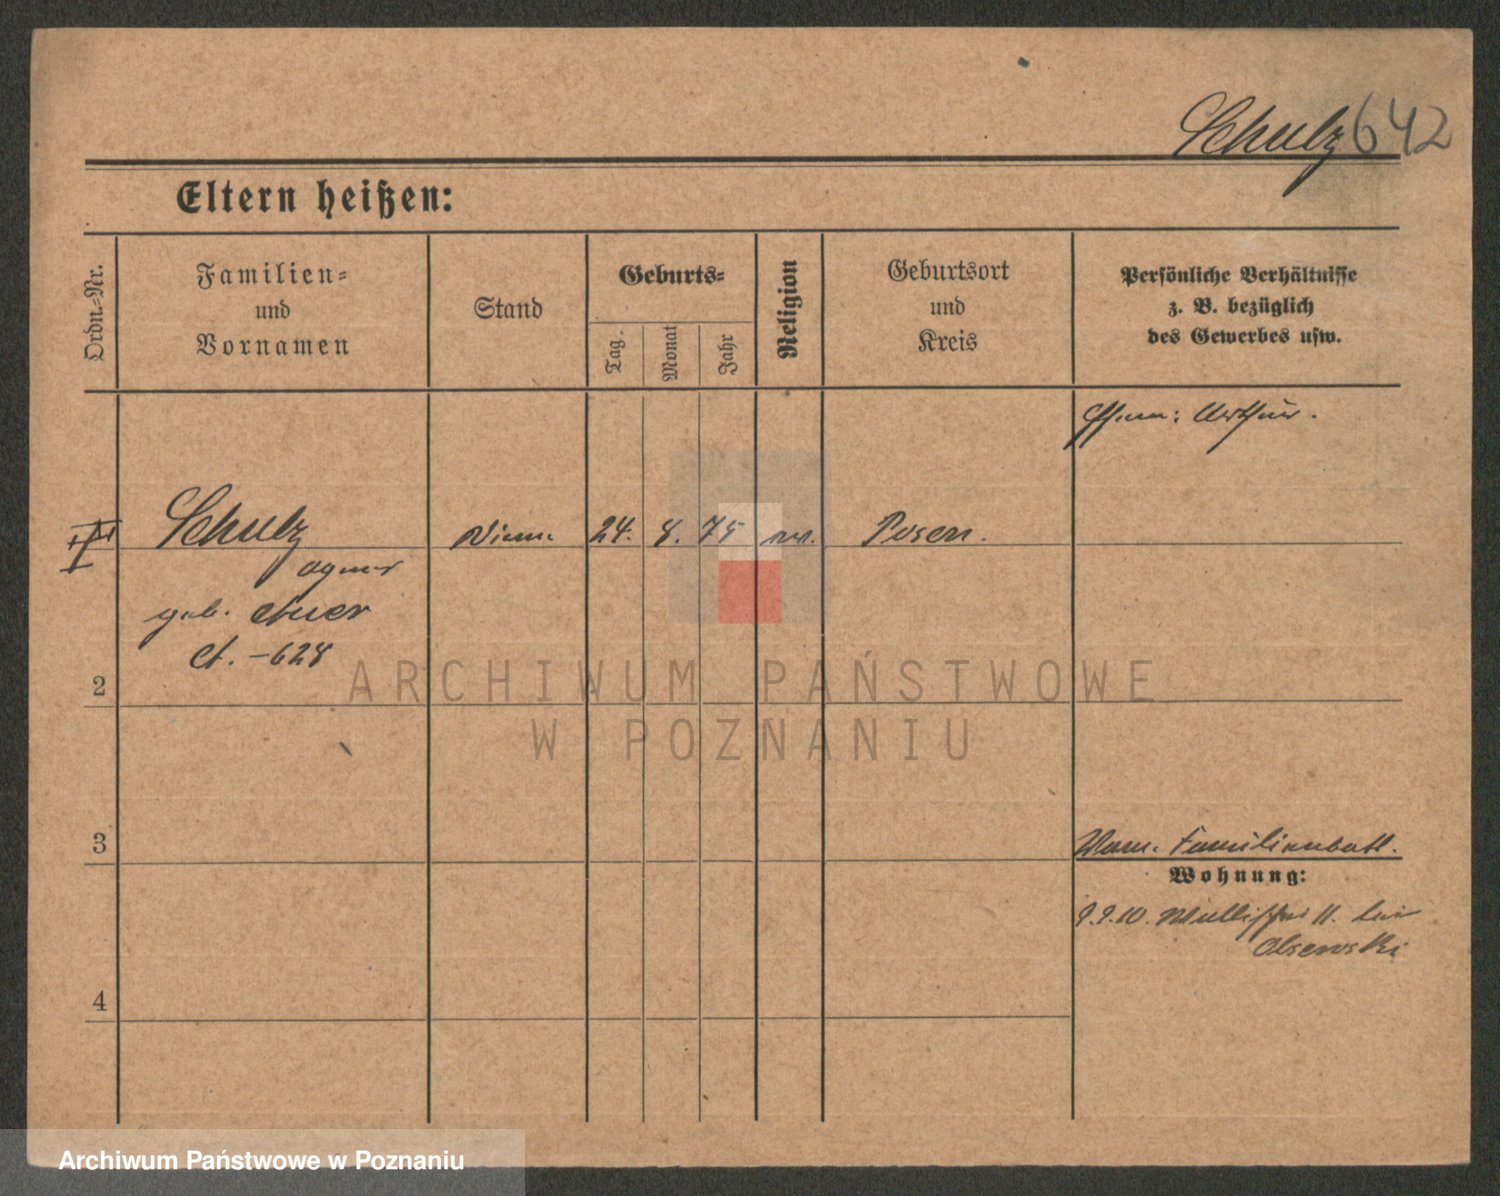 Schulz 642
Eltern heißen:
Ordn.-Nr.
Familien-
und
Vornamen
Stand
Geburts-
Tag.
Monat
Jahr
Religion
Geburtsort
und
Kreis
Persönliche Verhältnisse
z. B. bezüglich
des Gewerbes usw.
Arthur.
Schulz
24. 8. 75
Posen.
Agnes
geb. Auer
A. - 628
2
3
4
Familienbatt.
Wohnung:
9.9.10. 11. bei
Olsewski
ARCHIWUM PAŃSTWOWE
W POZNANIU
Archiwum Państwowe w Poznaniu